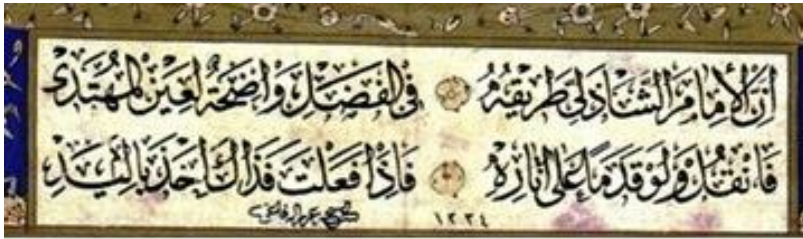 اِنَّ الْاِمَامَ الشَّاذِلِى طَرِيقُهُ فِى الْفَضْلِ وَاضِحَةٌ لِعَيْنِ الْمُهْتَدِى
فَانْقُلْ وَلَوْ قَدَمًا عَلَى اثَارِهِ فَاِذَا فَعَلْتَ فَذَاكَ اَخْذٌ بِالْيَدِ